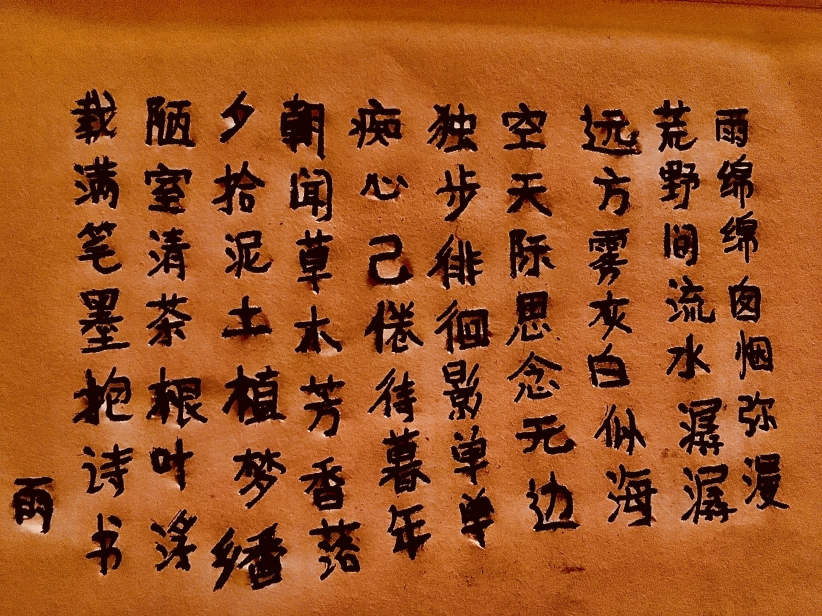 雨绵绵囱烟弥漫
荒野间流水潺潺
远方雾灰白似海
空天际思念无边
独步徘徊影单单
痴心己倦待暮年
朝闻草木芳香落
夕拾泥土植梦
陋室清茶根叶
载满笔墨抱诗书
雨